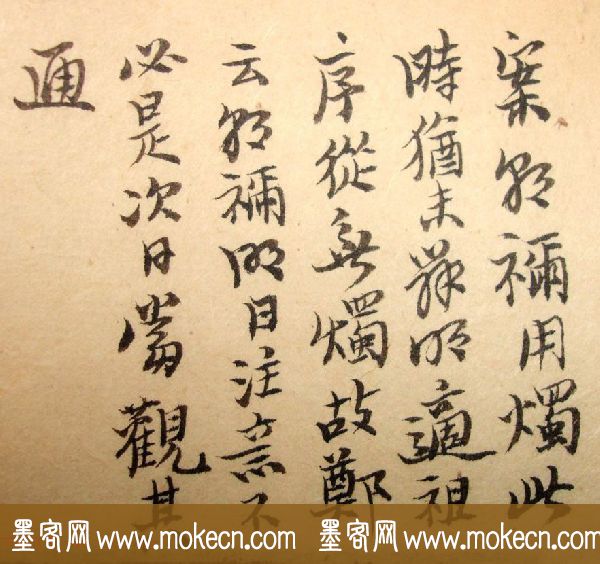 案朝禰用燭此
時猶未辨明適祖
序從無燭故鄭
云朝禰明日注意不
必是次日當觀其
通
墨客网 www.mokecn.com 墨客网 www.mokecn.com